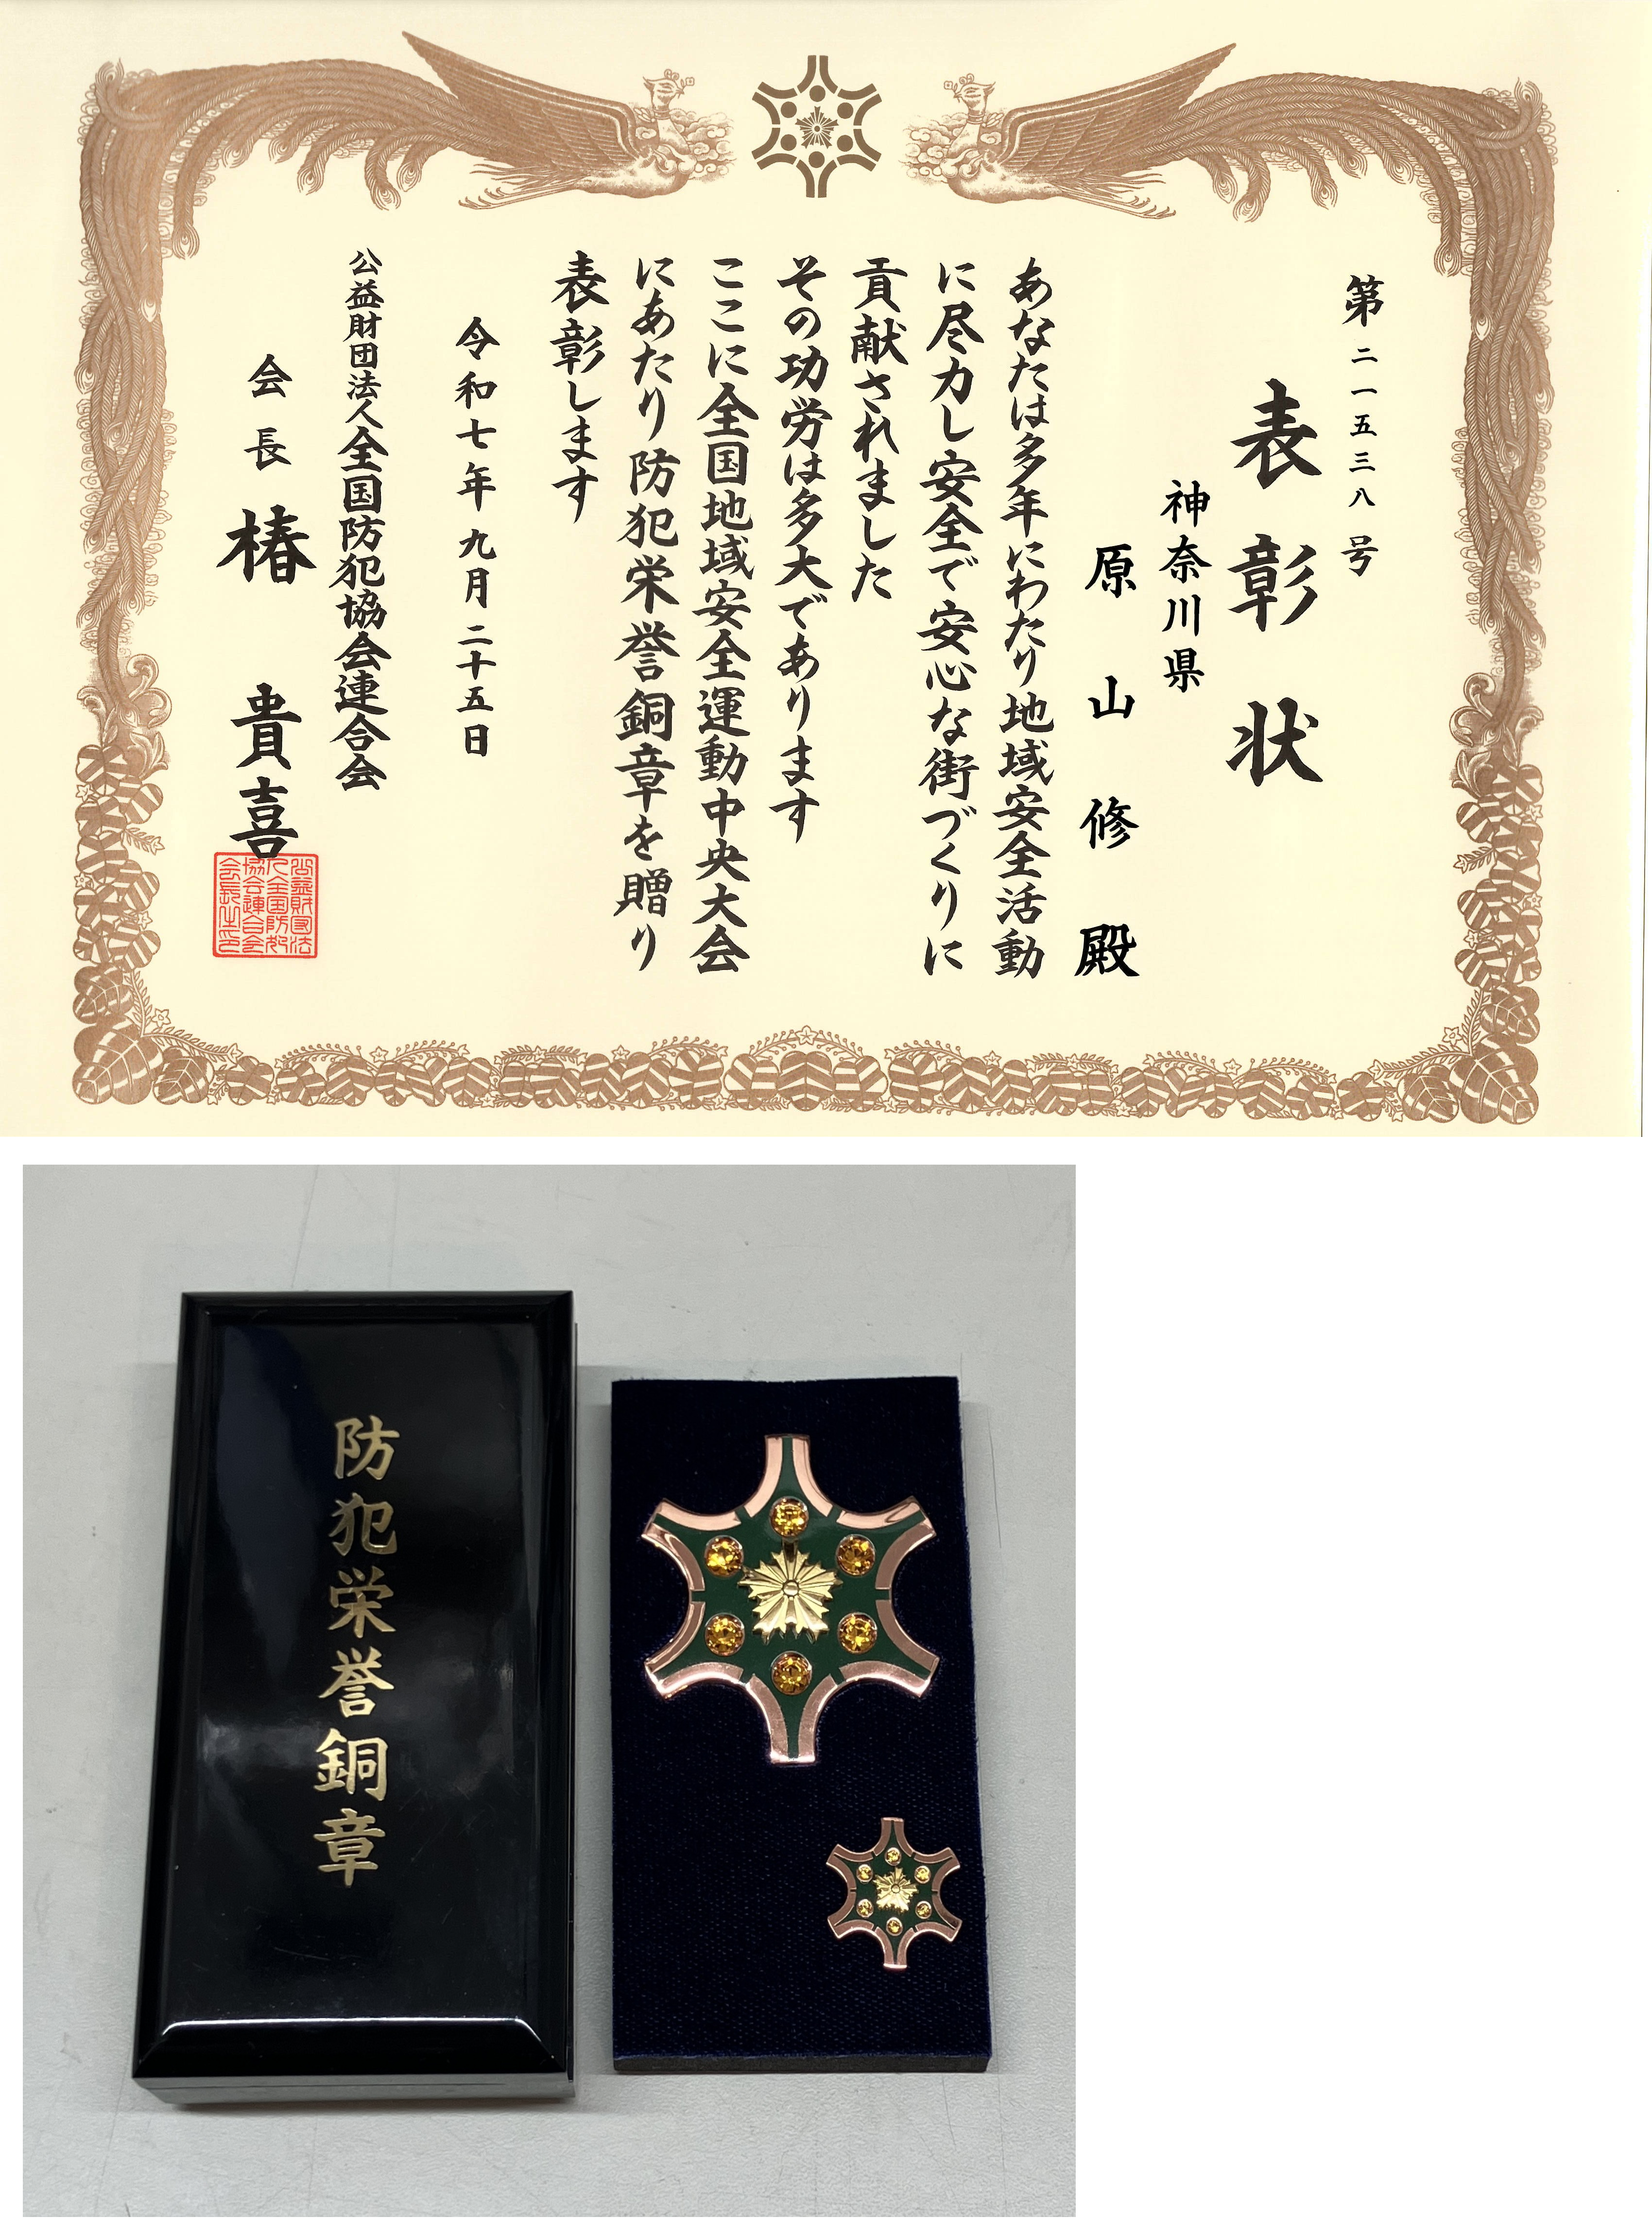 第二一五三八号
表彰状
神奈川県
原山修殿
あなたは多年にわたり地域安全活動
に尽力し安全で安心な街づくりに
貢献されました
その功労は多大であります
ここに全国地域安全運動中央大会
にあたり防犯栄誉銅章を贈り
表彰します
令和七年九月二十五日
公益財団法人全国防犯協会連合会
会長 椿 貴喜
防犯栄誉銅章